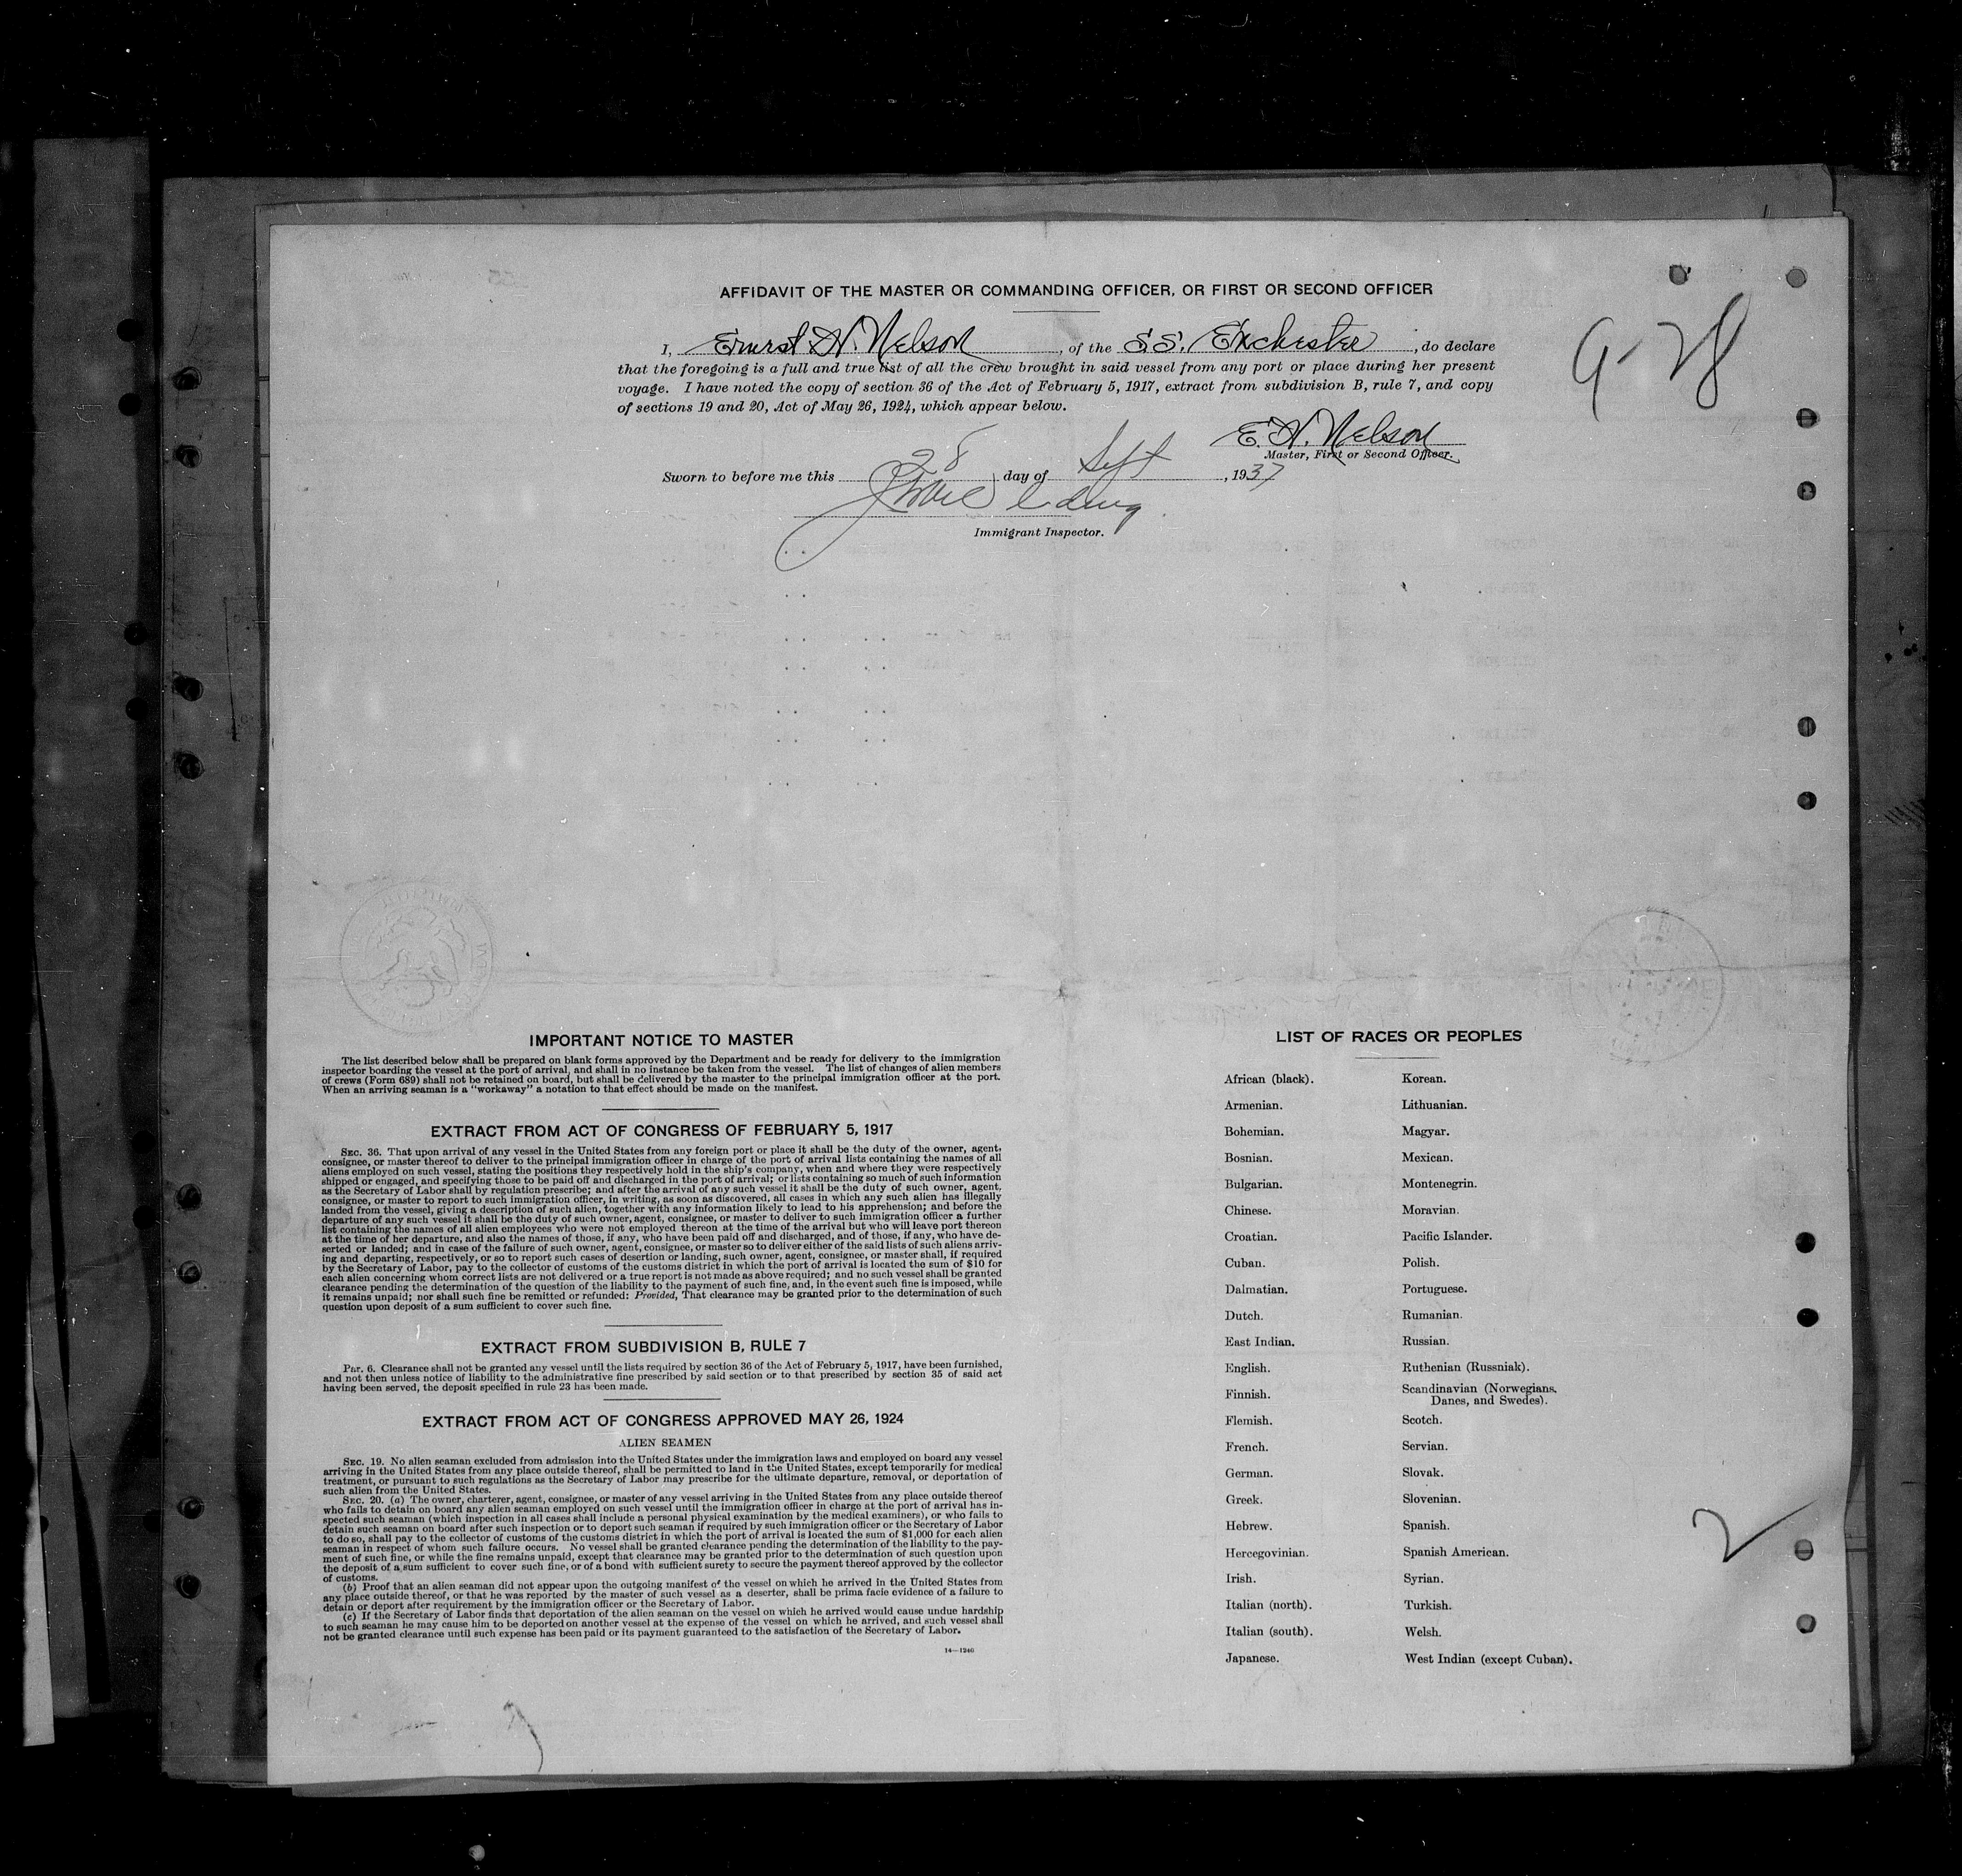 AFFIDAVIT OF THE MASTER OR COMMANDING OFFICER, OR FIRST OR SECOND OFFICER
I, Ernest N. Nelson, of the S.S. Exchester, do declare
that the foregoing is a full and true list of all the crew brought in said vessel from any port or place during her present
voyage. I have noted the copy of section 36 of the Act of February 5, 1917, extract from subdivision B, rule 7, and copy
of sections 19 and 20, Act of May 26, 1924, which appear below.
9-28
E. N. Nelson
Master, First or Second Officer.
Sworn to before me this 28 day of Sept, 1937
Immigrant Inspector.
IMPORTANT NOTICE TO MASTER
The list described below shall be prepared on blank forms approved by the Department and be ready for delivery to the immigration
inspector boarding the vessel at the port of arrival, and shall in no instance be taken from the vessel. The list of changes of alien members
of crews (Form 689) shall not be retained on board, but shall be delivered by the master to the principal immigration officer at the port.
When an arriving seaman is a "workaway" a notation to that effect should be made on the manifest.
EXTRACT FROM ACT OF CONGRESS OF FEBRUARY 5, 1917
SEC. 36. That upon arrival of any vessel in the United States from any foreign port or place it shall be the duty of the owner, agent,
consignee, or master thereof to deliver to the principal immigration officer in charge of the port of arrival lists containing the names of all
aliens employed on such vessel, stating the positions they respectively hold in the ship's company, when and where they were respectively
shipped or engaged, and specifying those to be paid off and discharged in the port of arrival; or lists containing so much of such information
as the Secretary of Labor shall by regulation prescribe; and after the arrival of any such vessel it shall be the duty of such owner, agent,
consignee, or master to report to such immigration officer, in writing, as soon as discovered, all cases in which any such alien has illegally
landed from the vessel, giving a description of such alien, together with any information likely to lead to his apprehension; and before the
departure of any such vessel it shall be the duty of such owner, agent, consignee, or master to deliver to such immigration officer a further
list containing the names of all alien employees who were not employed thereon at the time of the arrival but who will leave port thereon
at the time of her departure, and also the names of those, if any, who have been paid off and discharged, and of those, if any, who have de-
serted or landed; and in case of the failure of such owner, agent, consignee, or master so to deliver either of the said lists of such aliens arriv-
ing and departing, respectively, or so to report such cases of desertion or landing, such owner, agent, consignee, or master shall, if required
by the Secretary of Labor, pay to the collector of customs of the customs district in which the port of arrival is located the sum of $10 for
each alien concerning whom correct lists are not delivered or a true report is not made as above required; and no such vessel shall be granted
clearance pending the determination of the question of the liability to the payment of such fine, and, in the event such fine is imposed, while
it remains unpaid; nor shall such fine be remitted or refunded: Provided, That clearance may be granted prior to the determination of such
question upon deposit of a sum sufficient to cover such fine.
EXTRACT FROM SUBDIVISION B, RULE 7
Par. 6. Clearance shall not be granted any vessel until the lists required by section 36 of the Act of February 5, 1917, have been furnished,
and not then unless notice of liability to the administrative fine prescribed by said section or to that prescribed by section 35 of said act
having been served, the deposit specified in rule 23 has been made.
EXTRACT FROM ACT OF CONGRESS APPROVED MAY 26, 1924
ALIEN SEAMEN
SEC. 19. No alien seaman excluded from admission into the United States under the immigration laws and employed on board any vessel
arriving in the United States from any place outside thereof, shall be permitted to land in the United States, except temporarily for medical
treatment, or pursuant to such regulations as the Secretary of Labor may prescribe for the ultimate departure, removal, or deportation of
such alien from the United States.
SEC. 20. (a) The owner, charterer, agent, consignee, or master of any vessel arriving in the United States from any place outside thereof
who fails to detain on board any alien seaman employed on such vessel until the immigration officer in charge at the port of arrival has in-
spected such seaman (which inspection in all cases shall include a personal physical examination by the medical examiners), or who fails to
detain such seaman on board after such inspection or to deport such seaman if required by such immigration officer or the Secretary of Labor
to do so, shall pay to the collector of customs of the customs district in which the port of arrival is located the sum of $1,000 for each alien
seaman in respect of whom such failure occurs. No vessel shall be granted clearance pending the determination of the liability to the pay-
ment of such fine, or while the fine remains unpaid, except that clearance may be granted prior to the determination of such question upon
the deposit of a sum sufficient to cover such fine, or of a bond with sufficient surety to secure the payment thereof approved by the collector
of customs.
(b) Proof that an alien seaman did not appear upon the outgoing manifest of the vessel on which he arrived in the United States from
any place outside thereof, or that he was reported by the master of such vessel as a deserter, shall be prima facie evidence of a failure to
detain or deport after requirement by the immigration officer or the Secretary of Labor.
(c) If the Secretary of Labor finds that deportation of the alien seaman on the vessel on which he arrived would cause undue hardship
to such seaman he may cause him to be deported on another vessel at the expense of the vessel on which he arrived, and such vessel shall
not be granted clearance until such expense has been paid or its payment guaranteed to the satisfaction of the Secretary of Labor.
14—1246
LIST OF RACES OR PEOPLES
African (black).
Armenian.
Bohemian.
Bosnian.
Bulgarian.
Chinese.
Croatian.
Cuban.
Dalmatian.
Dutch.
East Indian.
English.
Finnish.
Flemish.
French.
German.
Greek.
Hebrew.
Hercegovinian.
Irish.
Italian (north).
Italian (south).
Japanese.
Korean.
Lithuanian.
Magyar.
Mexican.
Montenegrin.
Moravian.
Pacific Islander.
Polish.
Portuguese.
Rumanian.
Russian.
Ruthenian (Russniak).
Scandinavian (Norwegians,
Danes, and Swedes).
Scotch.
Servian.
Slovak.
Slovenian.
Spanish.
Spanish American.
Syrian.
Turkish.
Welsh.
West Indian (except Cuban).
2